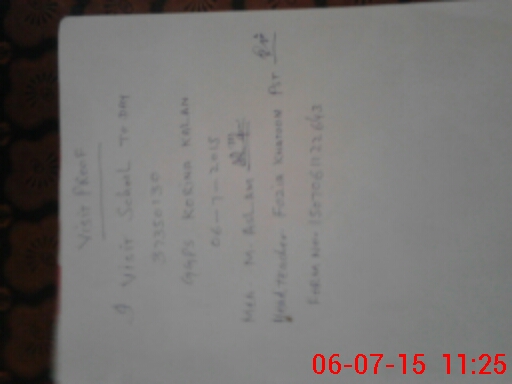 Visit Proof
I Visit School To Day
37350130
GGPS KORINA KALAN
06-7-2015
Mea M. ASLAM
Head teacher Fozia Khatoon PST
Form No: 
06-07-15 11:25